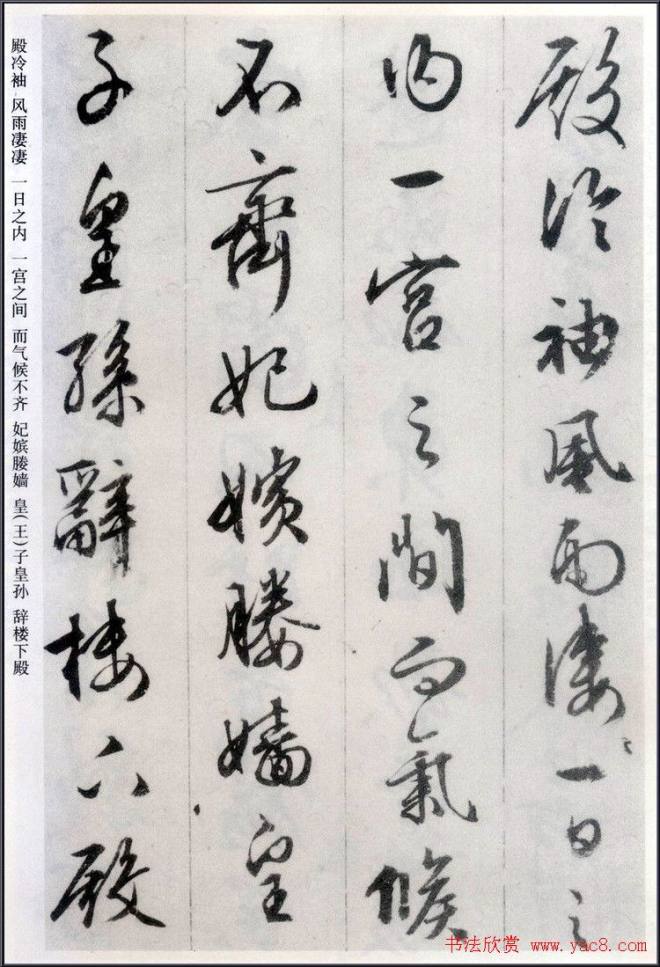 殿冷袖風雨淒々一日之
内一宮之間而氣候
不齊妃嬪媵嬙皇
子皇孫辭樓下殿
殿冷袖 风雨凄凄 一日之内 一宫之间 而气候不齐 妃嫔媵嫱 皇(王)子皇孙 辞楼下殿
书法欣赏 www.yac8.com